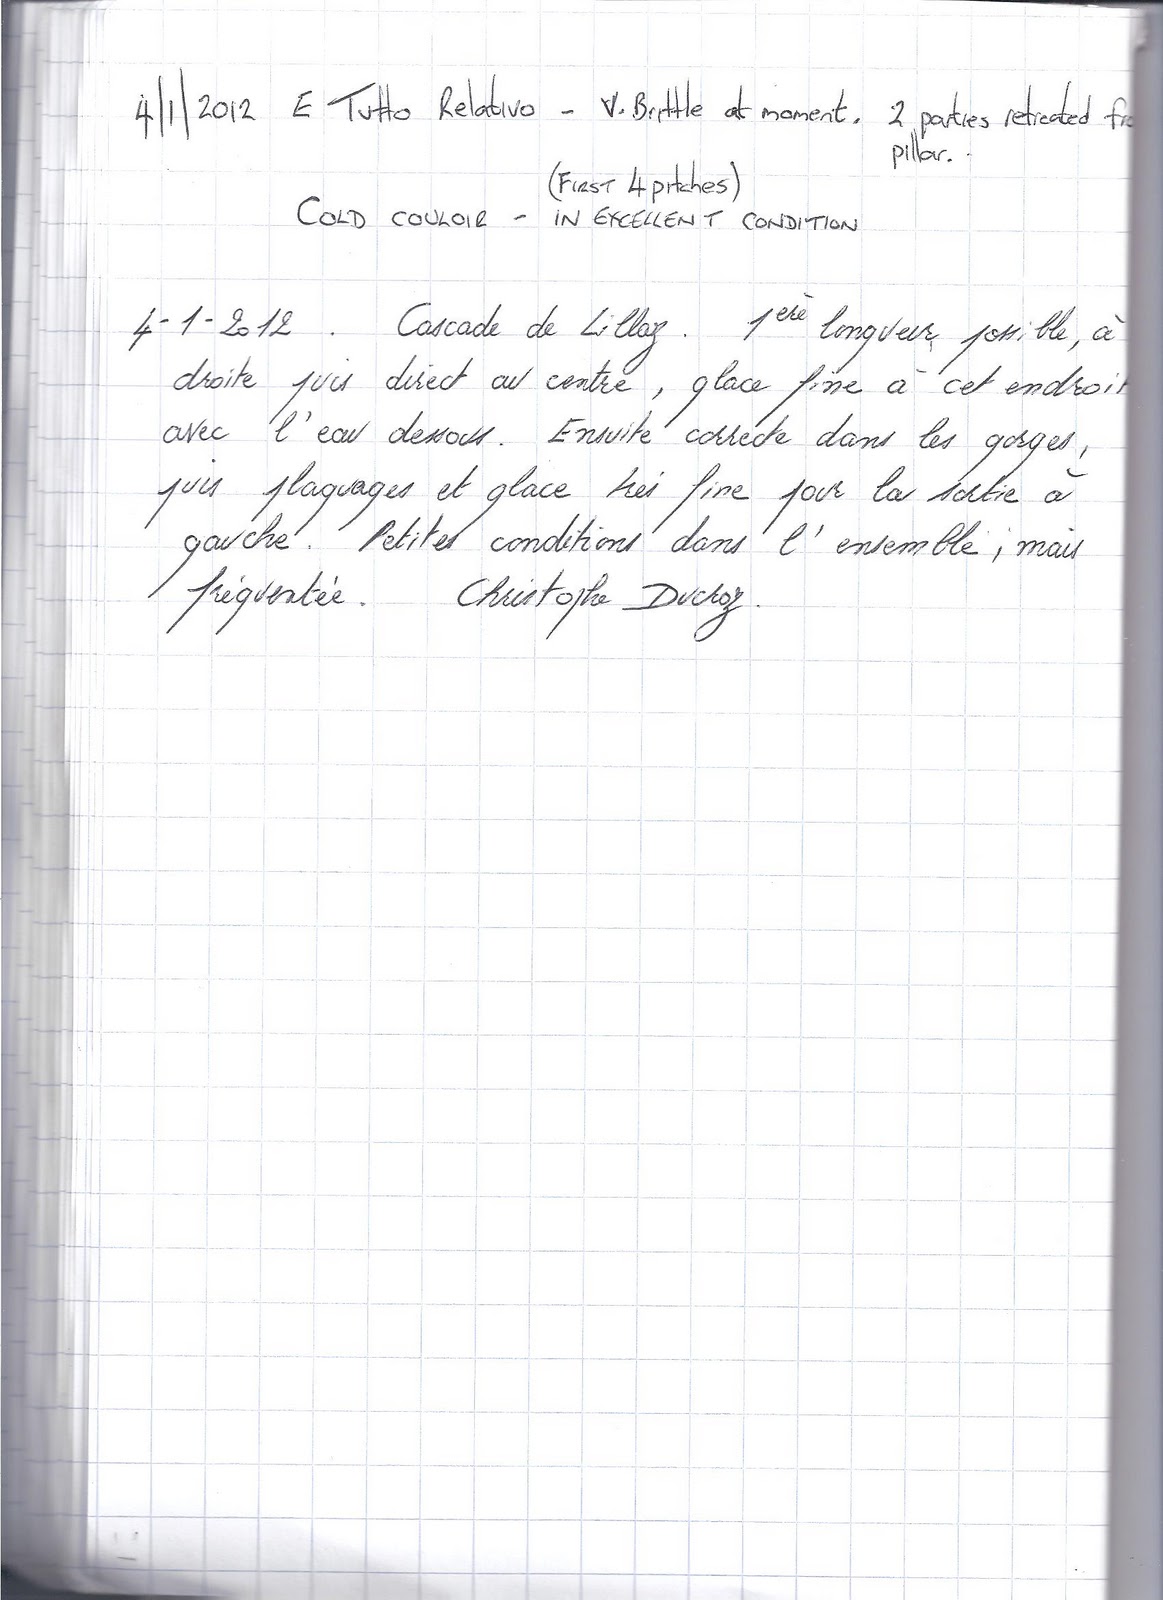 4/1/2012 E Tutto Relativo - V. Brittle at moment. 2 parties retreated fro
pillar..
(FIRST 4 pitches)
COLD COULOIR - IN EXCELLENT CONDITION
4-1-2012. Cascade de Lillaz. 1ère longueur possible, à
droite puis direct au centre, glace fine à cet endroit
avec l'eau dessous. Ensuite correcte dans les gorges,
puis plaquages et glace très fine pour la sortie à
gauche. Petites conditions dans l'ensemble, mais
fréquentée. Christophe Ducroz.